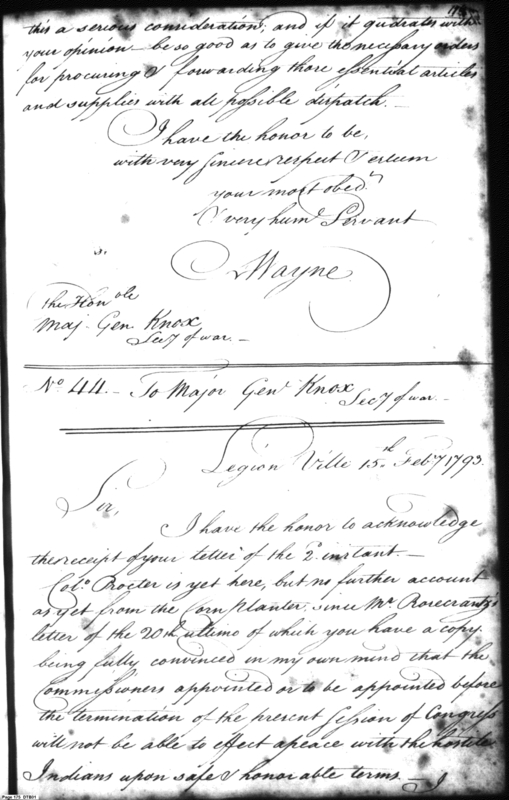 this a serious consideration, and if it quadrates with
your opinion - be so good as to give the necessary orders
for procuring & forwarding those essential articles
and supplies with all possible dispatch. -
I have the honor to be,
with very sincere respect & esteem
your most obedt
& very humb Servant
Wayne
the Honble
Maj. Gen. Knox
Secy of war. -
No. 44. - To Major Genl Knox
Secy of war. -
Legion Ville 15th Feby 1793.
Sir,
I have the honor to acknowledge
the receipt of your letter of the 2d instant. -
Colo. Procter is yet here, but no further account
as yet from the Corn Planter, since Mr. Rosecrantz's
letter of the 20th ultimo of which you have a copy.
being fully convinced in my own mind that the
Commissioners appointed or to be appointed before
the termination of the present Session of Congress
will not be able to effect a peace with the hostile
Indians upon safe & honorable terms. - I